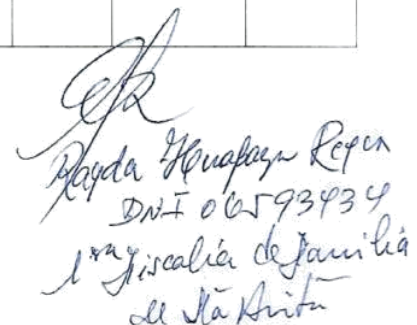 Mayda Huapaya Reyes
DNI 06593434
1ra Fiscalía de Familia
de Sta Anita